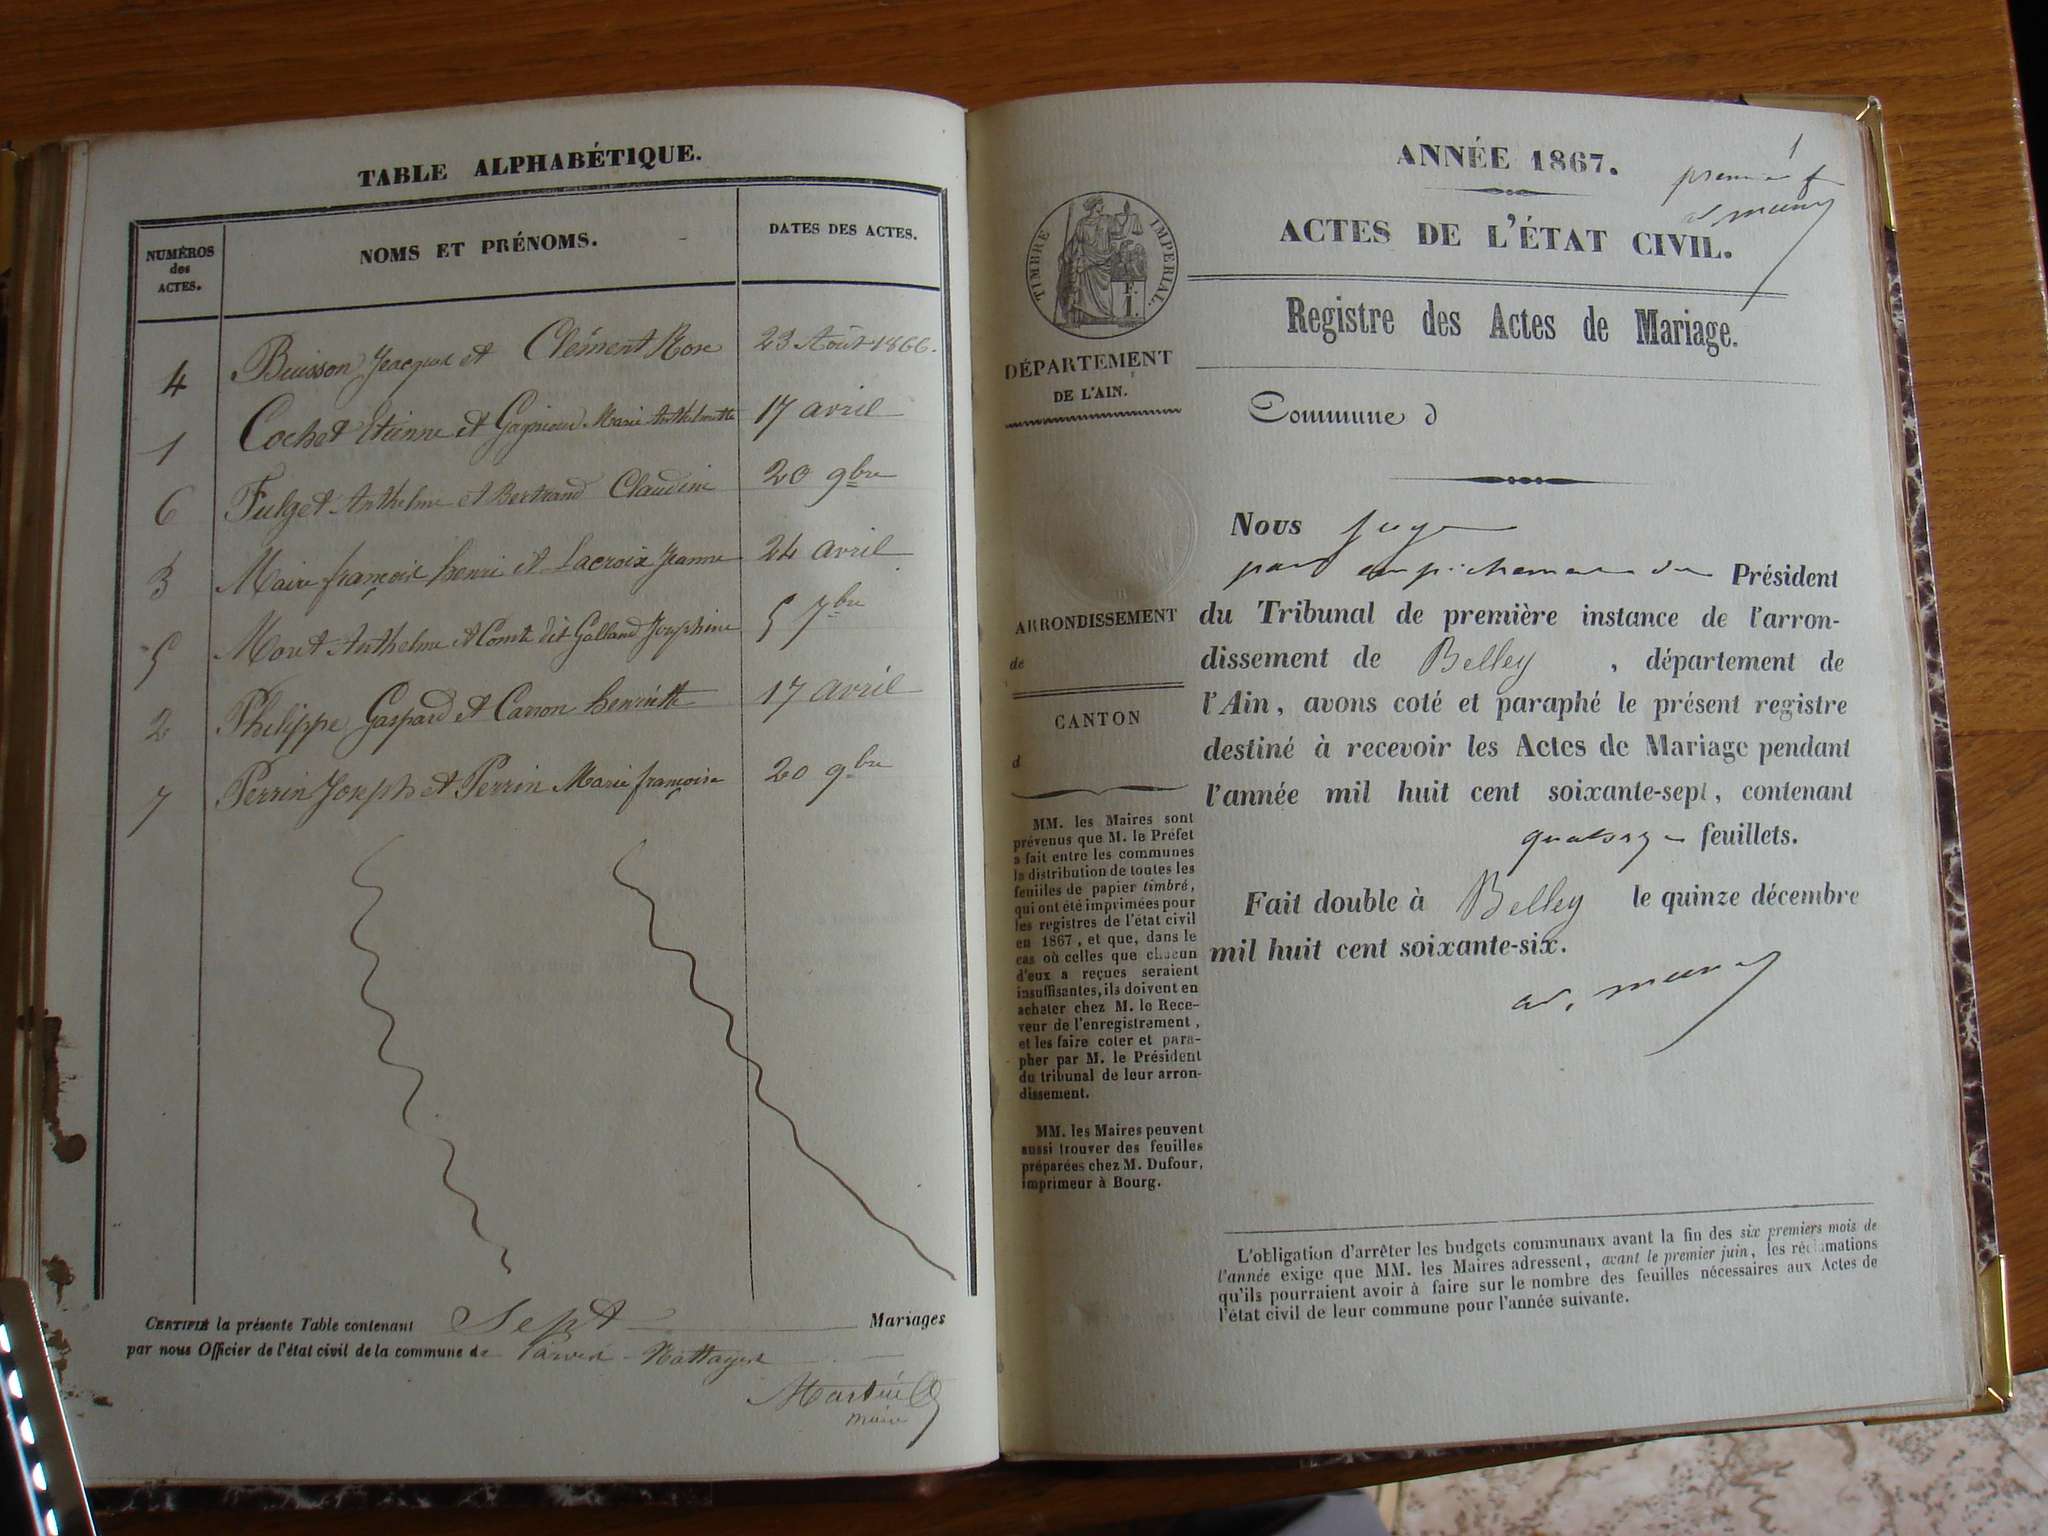 TABLE ALPHABÉTIQUE.
NUMÉROS
des
ACTES.
NOMS ET PRÉNOMS.
DATES DES ACTES.
4 Buisson Jacques et Clément Rose 23 Août 1866.
1 Cochet Etienne et Marie Anthelmette 17 avril
6 Fulget Anthelme et Bertrand Claudine 20 9bre
3 Maire françois henri et Lacroix Jeanne 24 avril
5 Moret Anthelme et Comte dit Galland Josephine 5 7bre
2 Philippe Gaspard et Carron henriette 17 avril
7 Perrin Joseph et Perrin Marie françoise 20 9bre
CERTIFIÉ la présente Table contenant Sept Mariages
par nous Officier de l'état civil de la commune de
Martin
maire
1
premier f
ANNÉE 1867.
ACTES DE L'ÉTAT CIVIL.
TIMBRE IMPÉRIAL.
Registre des Actes de Mariage.
DÉPARTEMENT
DE L'AIN.
Commune d
ARRONDISSEMENT
de
CANTON
d
MM. les Maires sont
prévenus que M. le Préfet
a fait entre les communes
la distribution de toutes les
feuilles de papier timbré,
qui ont été imprimées pour
les registres de l'état civil
en 1867, et que, dans le
cas où celles que chacun
d'eux a reçues seraient
insuffisantes, ils doivent en
acheter chez M. le Rece-
veur de l'enregistrement,
et les faire coter et para-
pher par M. le Président
du tribunal de leur arron-
dissement.
MM. les Maires peuvent
aussi trouver des feuilles
préparées chez M. Dufour,
imprimeur à Bourg.
Nous juge
par empêchement du Président
du Tribunal de première instance de l'arron-
dissement de Belley, département de
l'Ain, avons coté et paraphé le présent registre
destiné à recevoir les Actes de Mariage pendant
l'année mil huit cent soixante-sept, contenant
quatorze feuillets.
Fait double à Belley le quinze décembre
mil huit cent soixante-six.
L'obligation d'arrêter les budgets communaux avant la fin des six premiers mois de
l'année exige que MM. les Maires adressent, avant le premier juin, les réclamations
qu'ils pourraient avoir à faire sur le nombre des feuilles nécessaires aux Actes de
l'état civil de leur commune pour l'année suivante.